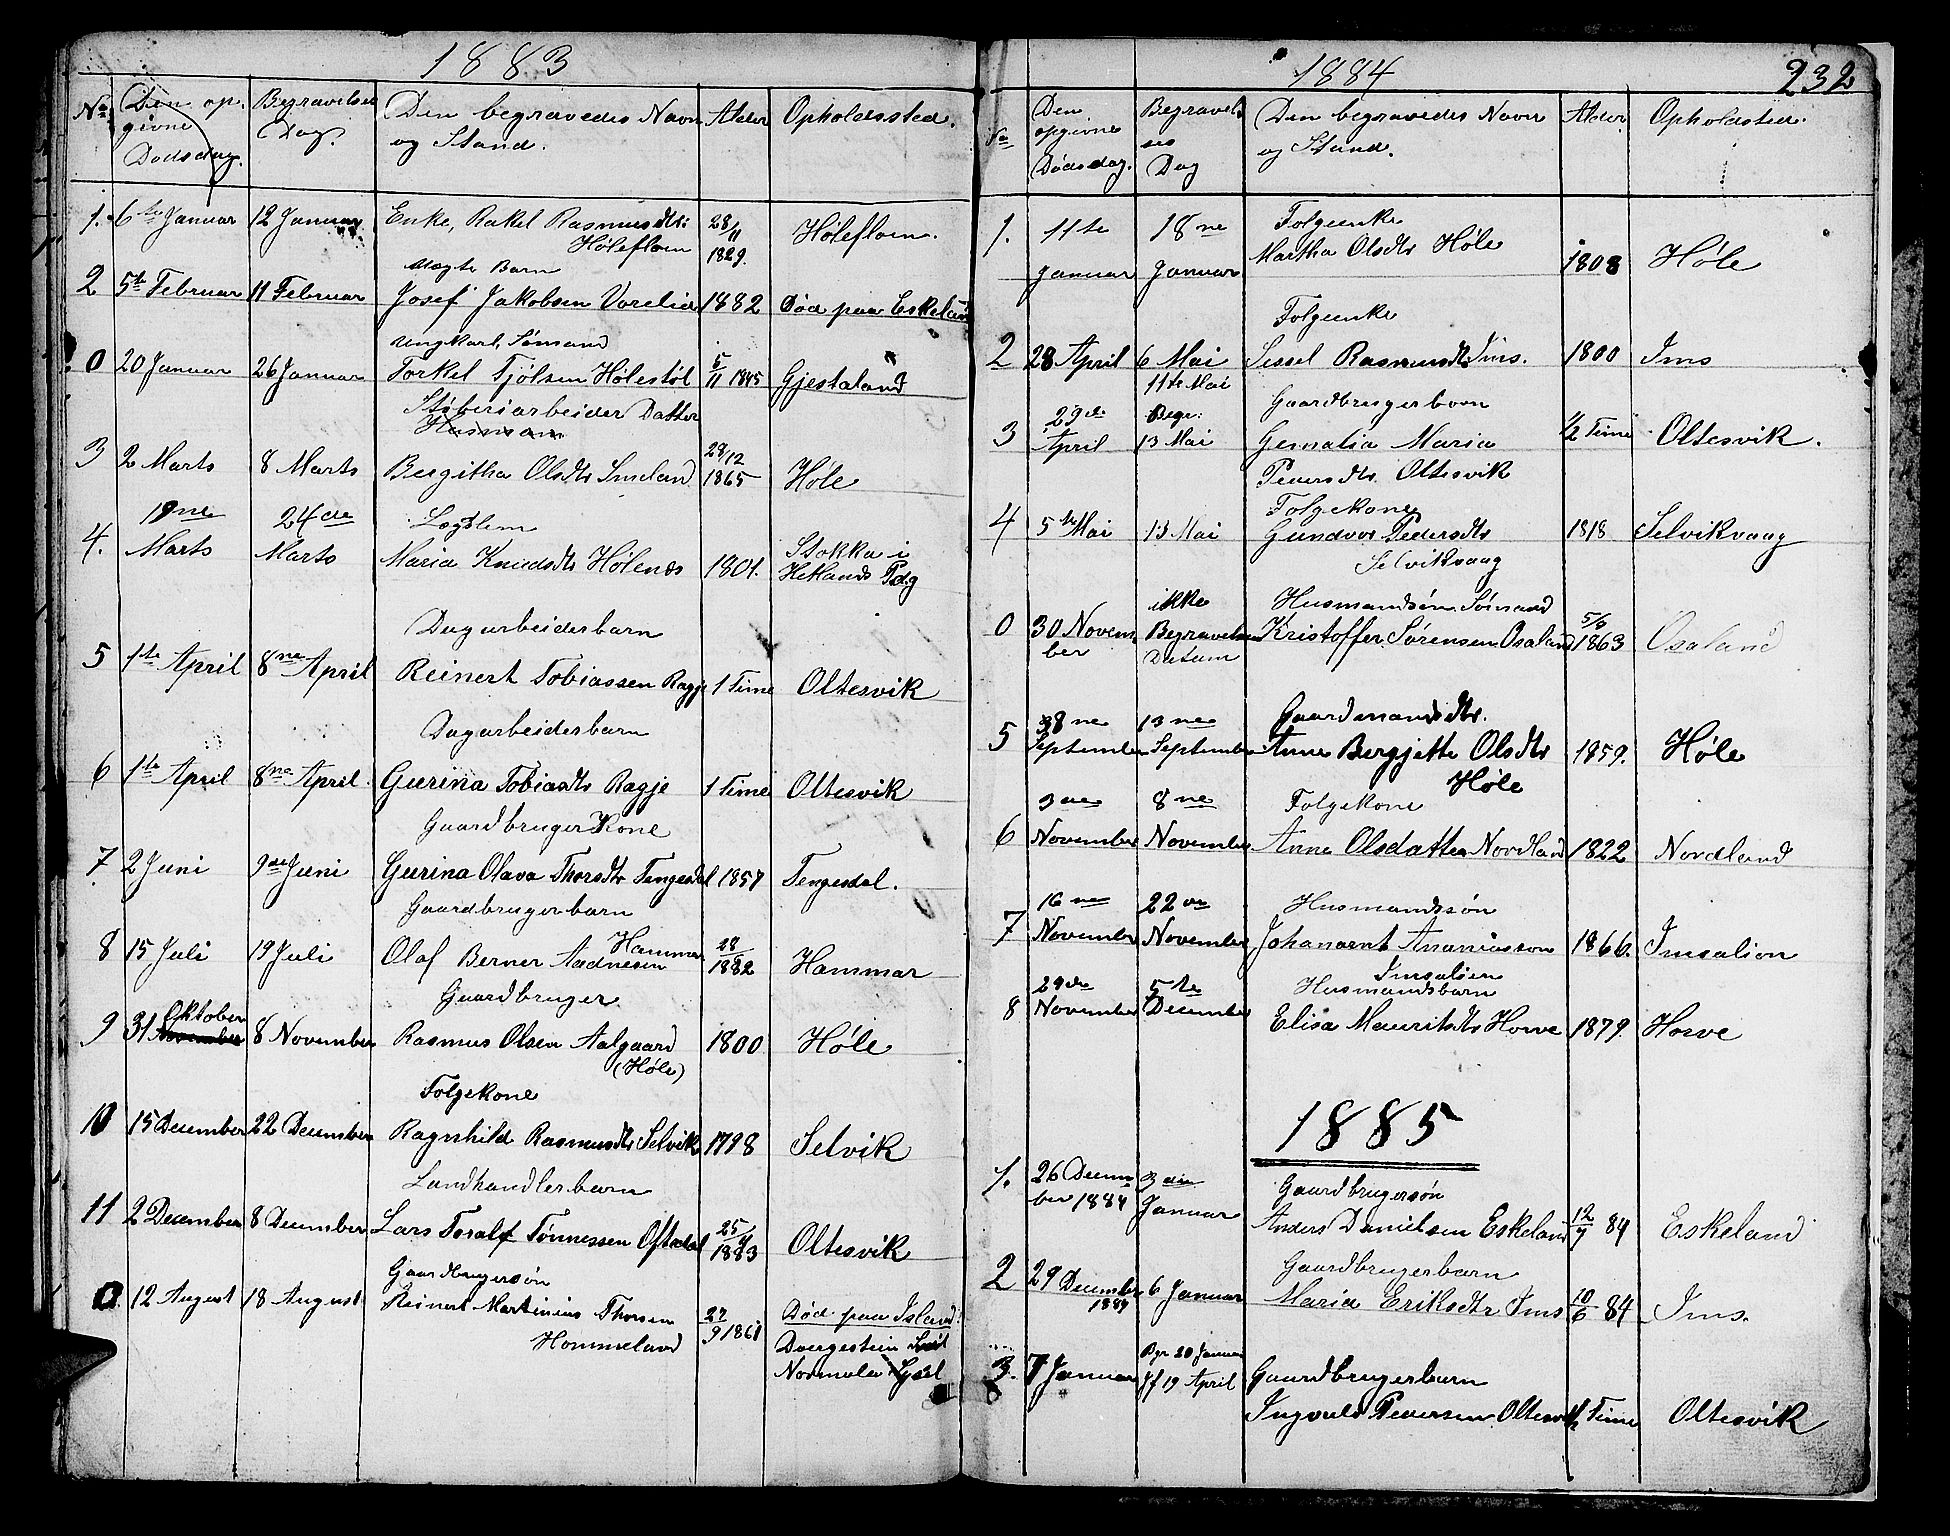 1883
No Den op- Begravelses Den begravedes Navn Alder Opholdssted.
givne Dag. og Stand.
Dødsdag.
1. 6te Januar 12 Januar Enke, Rakel Rasmusdtr: 28/11 Hølefloen.
Hølefloen 1829.
ægte Barn
2 5te Februar 11 Februar Josef Jakobsen Vorelid 1882 Død paa Eskeland
Ungkarl, Sømand
0 20 Januar 26 Januar Torkel Tjølsen Hølestøl 5/11 1845 Gjestaland
Støberiarbeider Datter
Husmann
3 2 Marts 8 Marts Bergitha Olsdtr Imsland 28/12 1865 Høle
19ne 24de Lægdslem
4. Marts Marts Maria Knudsdtr Hølenæs 1801. Stokka i
Hetlands Pdg
Dagarbeiderbarn
5 1te April 8ne April Reinert Tobiassen Ragje 1 Time Oltesvik
Dagarbeiderbarn
6 1te April 8ne April. Gurina Tobiasdtr Ragje 1 Time Oltesvik
Gaardbruger Kone
7. 2 Juni 9de Juni Gurina Olava Thorsdtr Tengesdal 1857 Tengesdal.
Gaardbrugerbarn
8 15 Juli 19 Juli Olaf Berner Aadnesen Hammer 1882 Hammar
Gaardbruger
Oktober
9 31 November 8 November Rasmus Olsen Aalgaard 1800 Høle
(Høle)
Folgekone
10 15 December 22 December Ragnhild Rasmusdtr Selvik 1798 Selvik
Landhandlerbarn
11 2 December 8 December Lars Toralf Tønnessen Oftedal 25/4 1883 Oltesvik
Gaardbrugersøn
0. 12 August 18 August Reinert Martinius Thorsen 27/9 1861 Død paa Island:
Hommeland Dvergestein
Normule Sysel
1884
232
No Den Begravel- Den begravedes Navn Alder. Opholdsted.
opgivne ses og Stand.
Dødsdag. Dag
1. 11te 18ne Folgeenke
Januar Januar Martha Olsdtr Høle 1808 Høle
Folgeenke
2 28 April 6 Mai Sissel Rasmusdtr Ims. 1800 Ims
11te Mai
29de Begr: Gaardbrugerbarn
3 April 13 Mai Gemalia Maria 1/2 Time Oltesvik.
Pedersdtr Oltesvik
Folgekone
4 5te Mai 13 Mai Gundvor Pedersdtr 1818 Selvikvaag
Selvikvaag
ikke Husmandsøn Sømand
0 30 Novem- Begravelses Kristoffer Sørensen Osaland 5/5 1863 Osaland
ber Datum
8ne 13ne Gaardmandsdtr.
5 September September Anne Bergjette Olsdtr 1859. Høle
Høle
3die 8ne Folgekone
6 November November Anne Olsdatter Nordland 1822 Nordland
16ne 22de Husmandssøn
7 November November Johanarnt Ananiassøn 1866. Imsalien
Imsalien
29de 5te Husmandsbarn
8 November December Elisa Mauritsdtr Horve 1879. Horve
1885
1. 26 Decem- 3die Gaardbrugersøn
ber 1884 Januar Anders Danielsen Eskeland 12/7 84 Eskeland
Gaardbrugerbarn
2 29 December 6 Januar Maria Eriksdtr Ims 10/6 84 Ims.
1884
3. 7 Januar Bgr 20 Januar Gaardbrugerbarn
Jf 19 April
Ingvald Pedersen Oltesvik 1/2 Time Oltesvik